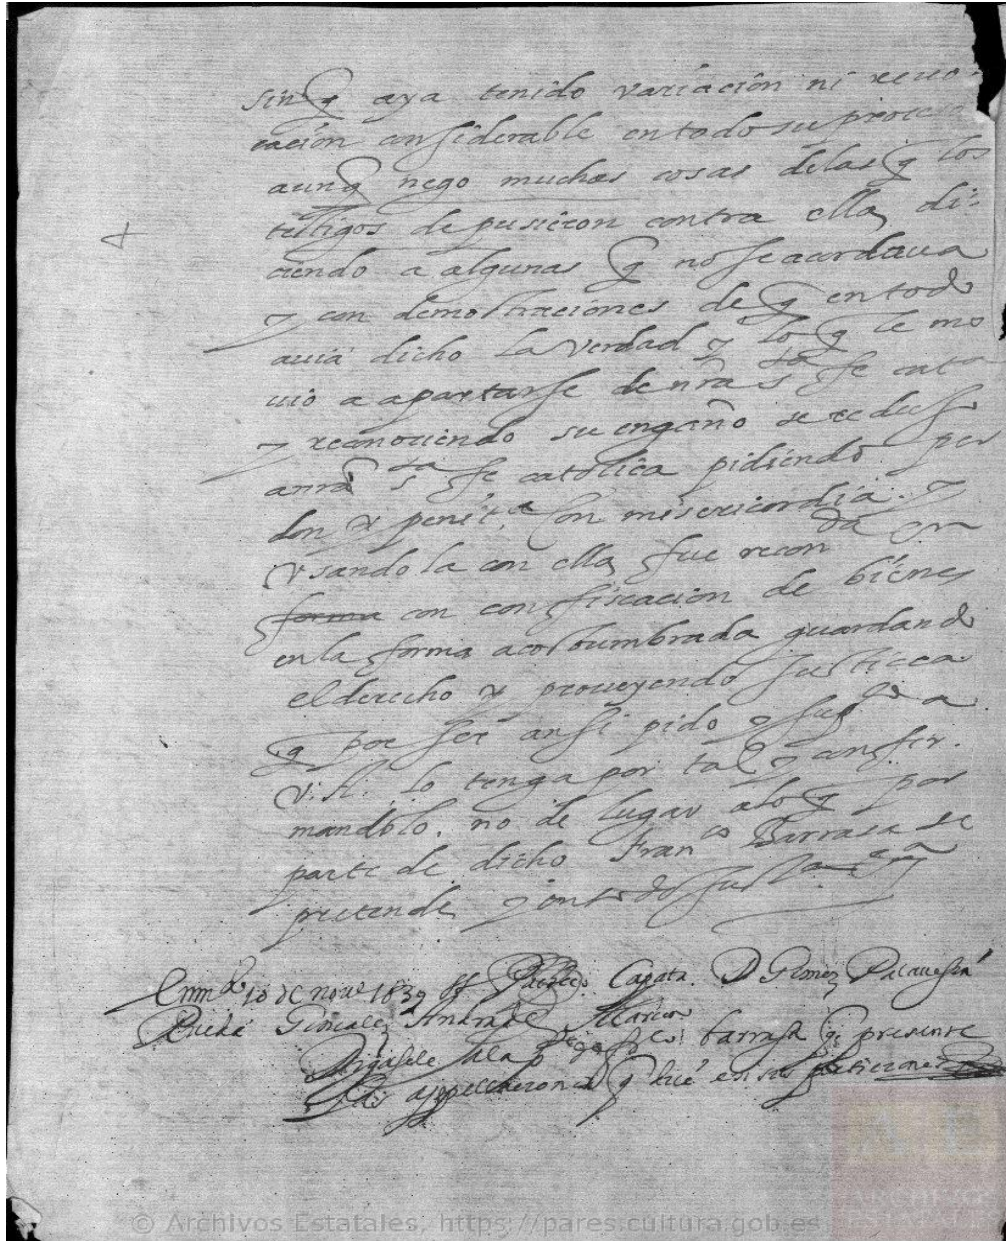 sin q aya tenido variacion ni reuo-
cacion considerable en todo su proceso
aunq nego muchas cosas de las q los
testigos depusieron contra ella, di-
ciendo a algunas q no se acordaua
y con demostraciones de q en todo
auia dicho la verdad y lo q le mo
uio a apartarse de nra sta fe cat ca
y reconociendo su engaño se reduss
a nra sta fe catolica pidiendo per
don y penit.a con misericordia. y
vsandola con ella, fue recon da en
forma con confiscacion de bienes
en la forma acostumbrada guardando
el derecho y proueyendo justicia
q por ser ansi pido y sup co a
V.A. lo tenga por tal y confir-
mandolo. no de lugar a lo q por
parte de dicho Fran co Barrasa se
pretende y en todo just a
En m d 10 de nou e 1639 ss Pacheco. Capata. D Gomez
Rueda Gonçalez Andrade Alarcon
Digasele a la p te de fr co barrasa q presente
las appellaciones q diçe en sus peticiones
© Archivos Estatales, https://pares.cultura.gob.es